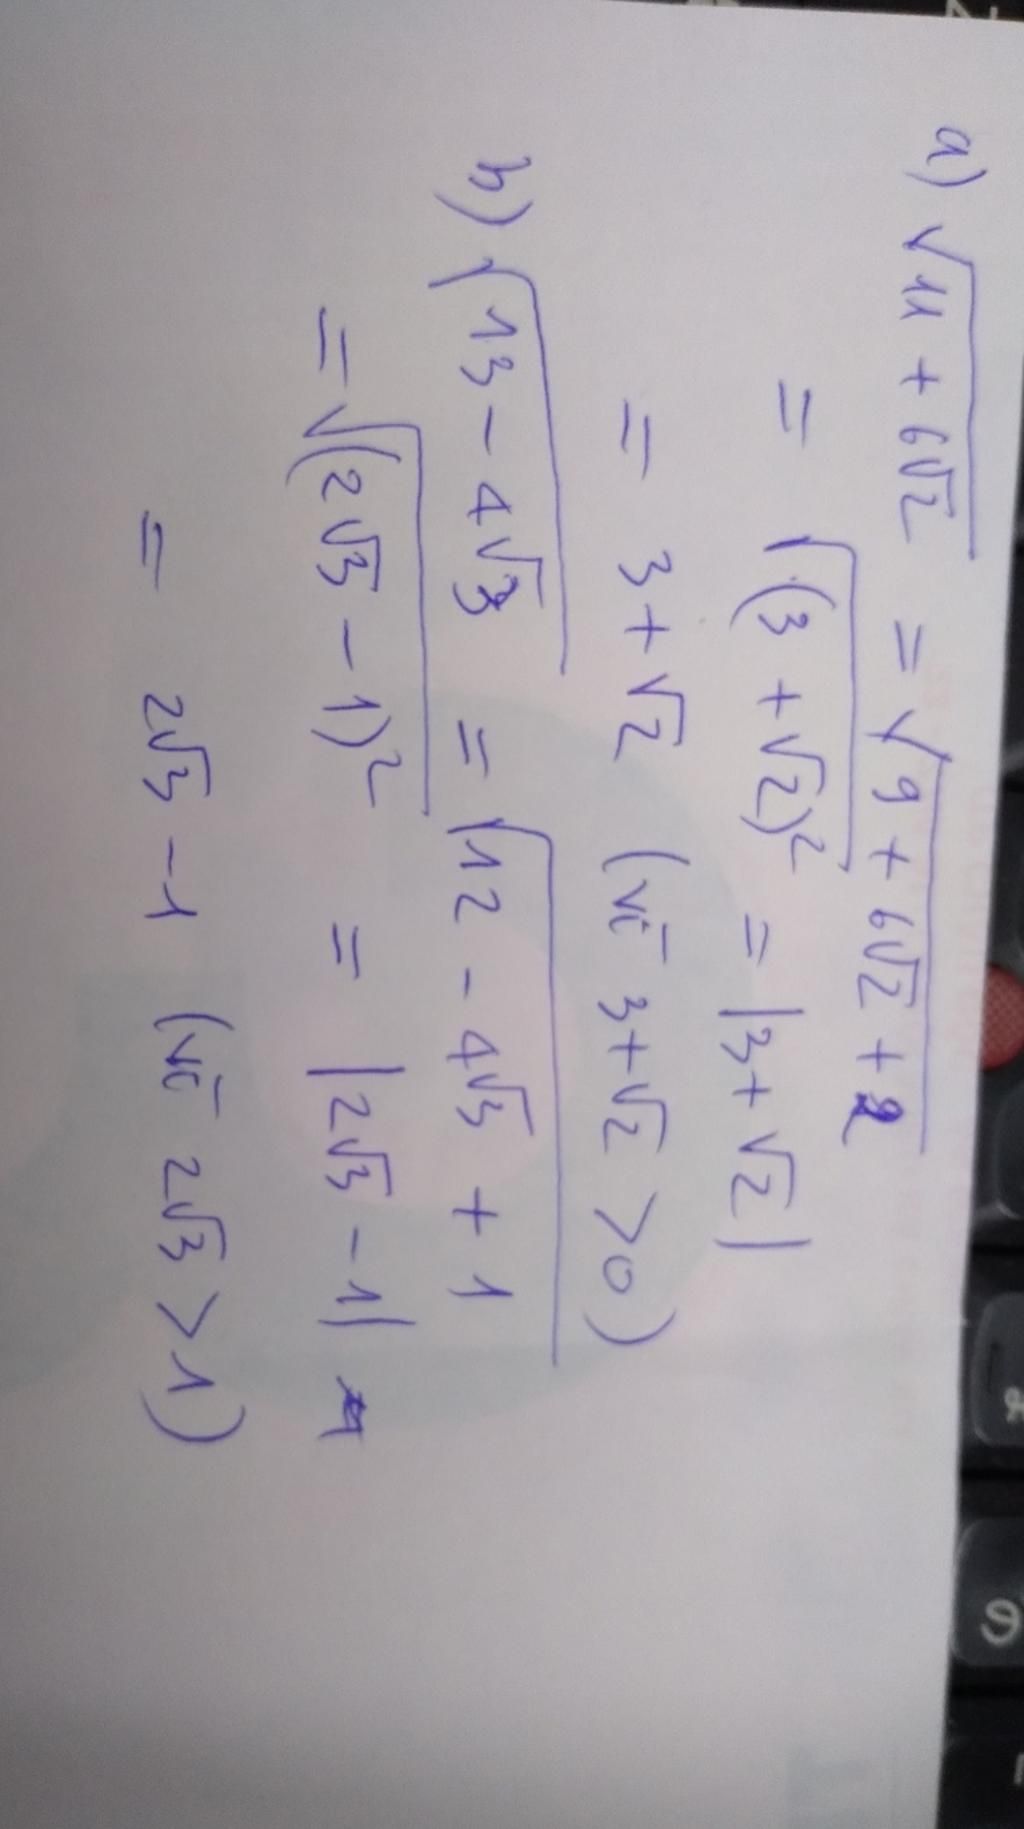 a) √(11 + 6√2) = √(9 + 6√2 + 2)
= √((3 + √2)²) = |3 + √2|
= 3 + √2 (vì 3 + √2 > 0)
b) √(13 - 4√3) = √(12 - 4√3 + 1)
= √((2√3 - 1)²) = |2√3 - 1|
= 2√3 - 1 (vì 2√3 > 1)